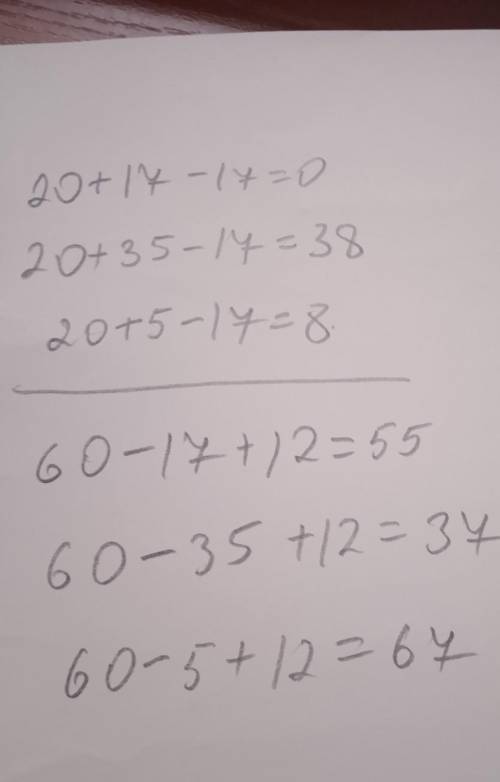 20+17-17=0
20+35-17=38
20+5-17=8.
60-17+12=55
60-35+12=37
60-5+12=67